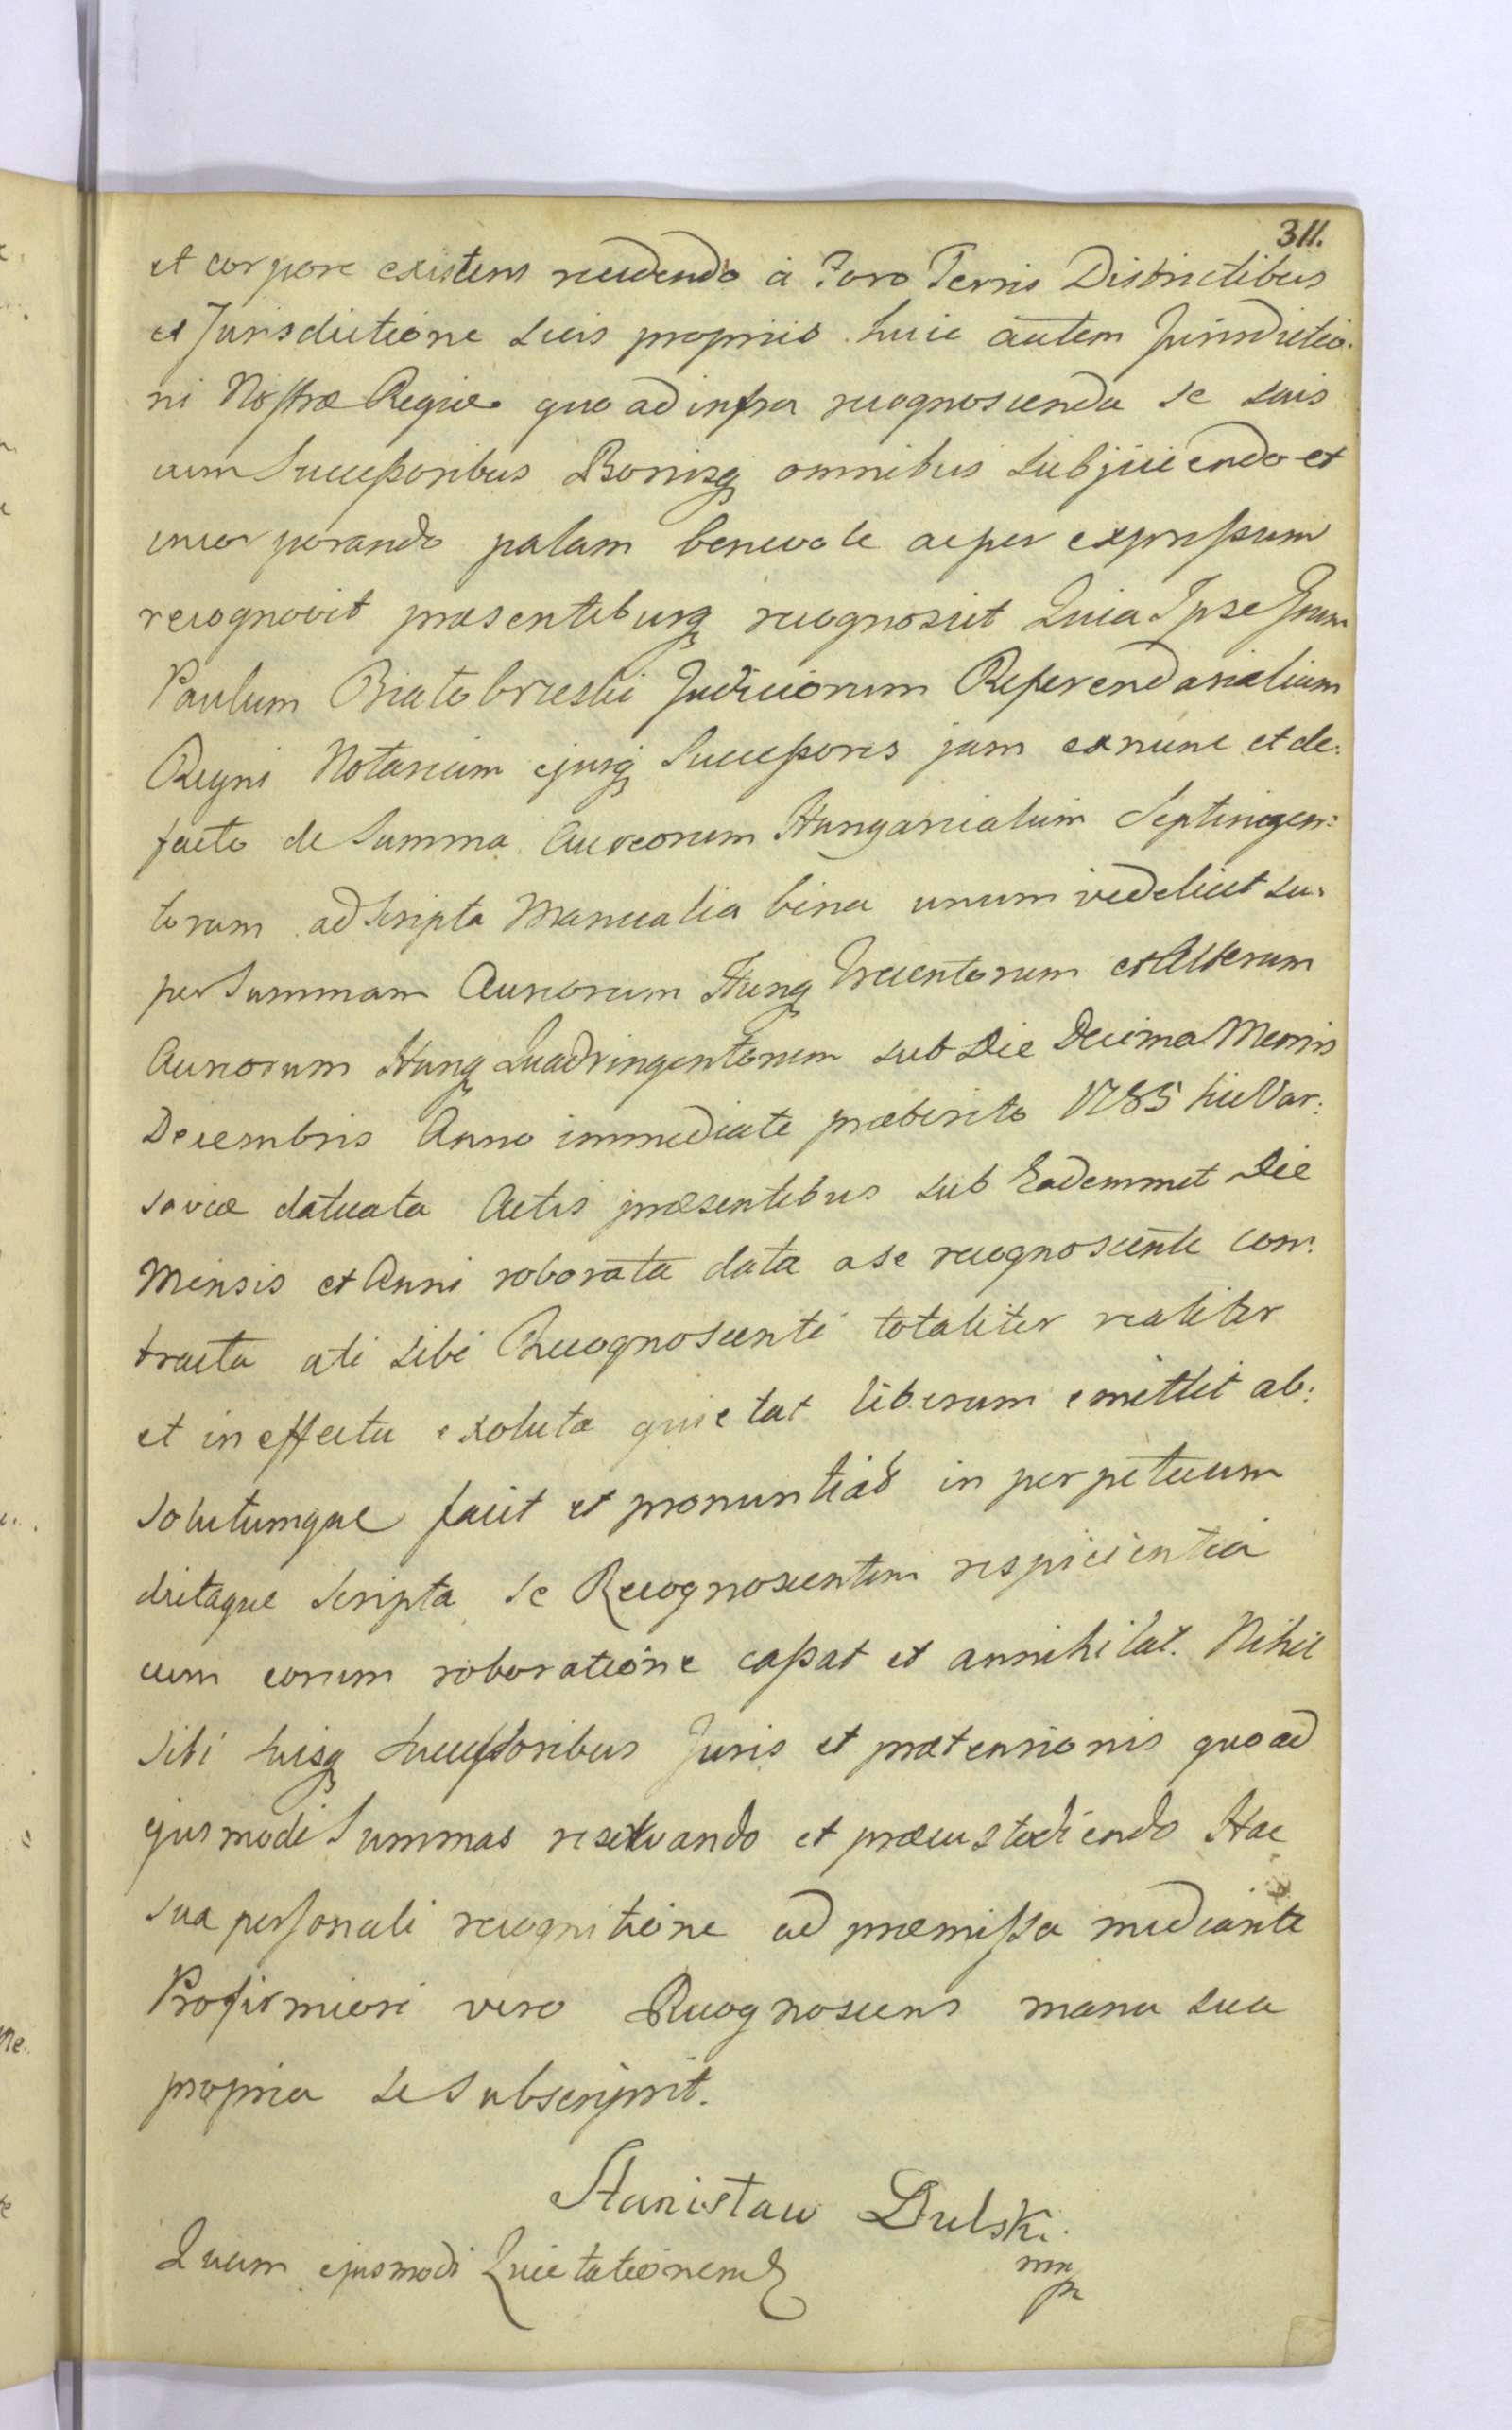 311.
et corpore existens recedendo à Foro Terris Districtibus
et Jurisdictione suis propriis huic autem Jurisdictio:
ni Nostræ Regiæ quo ad infra recognoscenda se suis
cum Successoribus Bonisq omnibus subjiciendo et
incorporando palam benevole ac per expressum
recognovit præsentibusq recognoscit Quia Ipse Gnum
Paulum Białobrzeski Judiciorum Referendarialium
Regni Notarium ejusq Successores jam ex nunc et de:
facto de Summa Aureorum Hungaricalium Septingen:
torum ad Scripta Manualia bina unum videlicet su:
per Summam Aureorum Hung Trecentorum et Alterum
Aureorum Hung Quadringentorum sub Die Decima Mensis
Decembris Anno immediate præterito 1785 hic Var:
saviæ datuata Actis præsentibus sub Eademmet Die
Mensis et Anni roborata data a se recognoscente con:
tracta uti sibi Recognoscenti totaliter realiter
et in effectu exoluta quietat liberum emittit ab:
solutumque facit et pronuntiat in perpetuum
dictaque Scripta se Recognoscentem respicientia
cum eorum roboratione cassat et annihilat. Nihil
sibi suisq Successoribus Juris et prætensionis quo ad
ejusmodi Summas reservando et præcustodiendo Hac
sua personali recognitione ad præmissa mediante
Pro firmiori vero Recognoscens manu sua
propria se subscripsit.
Stanisław Dulski
mp
Quam ejusmodi Quietationem